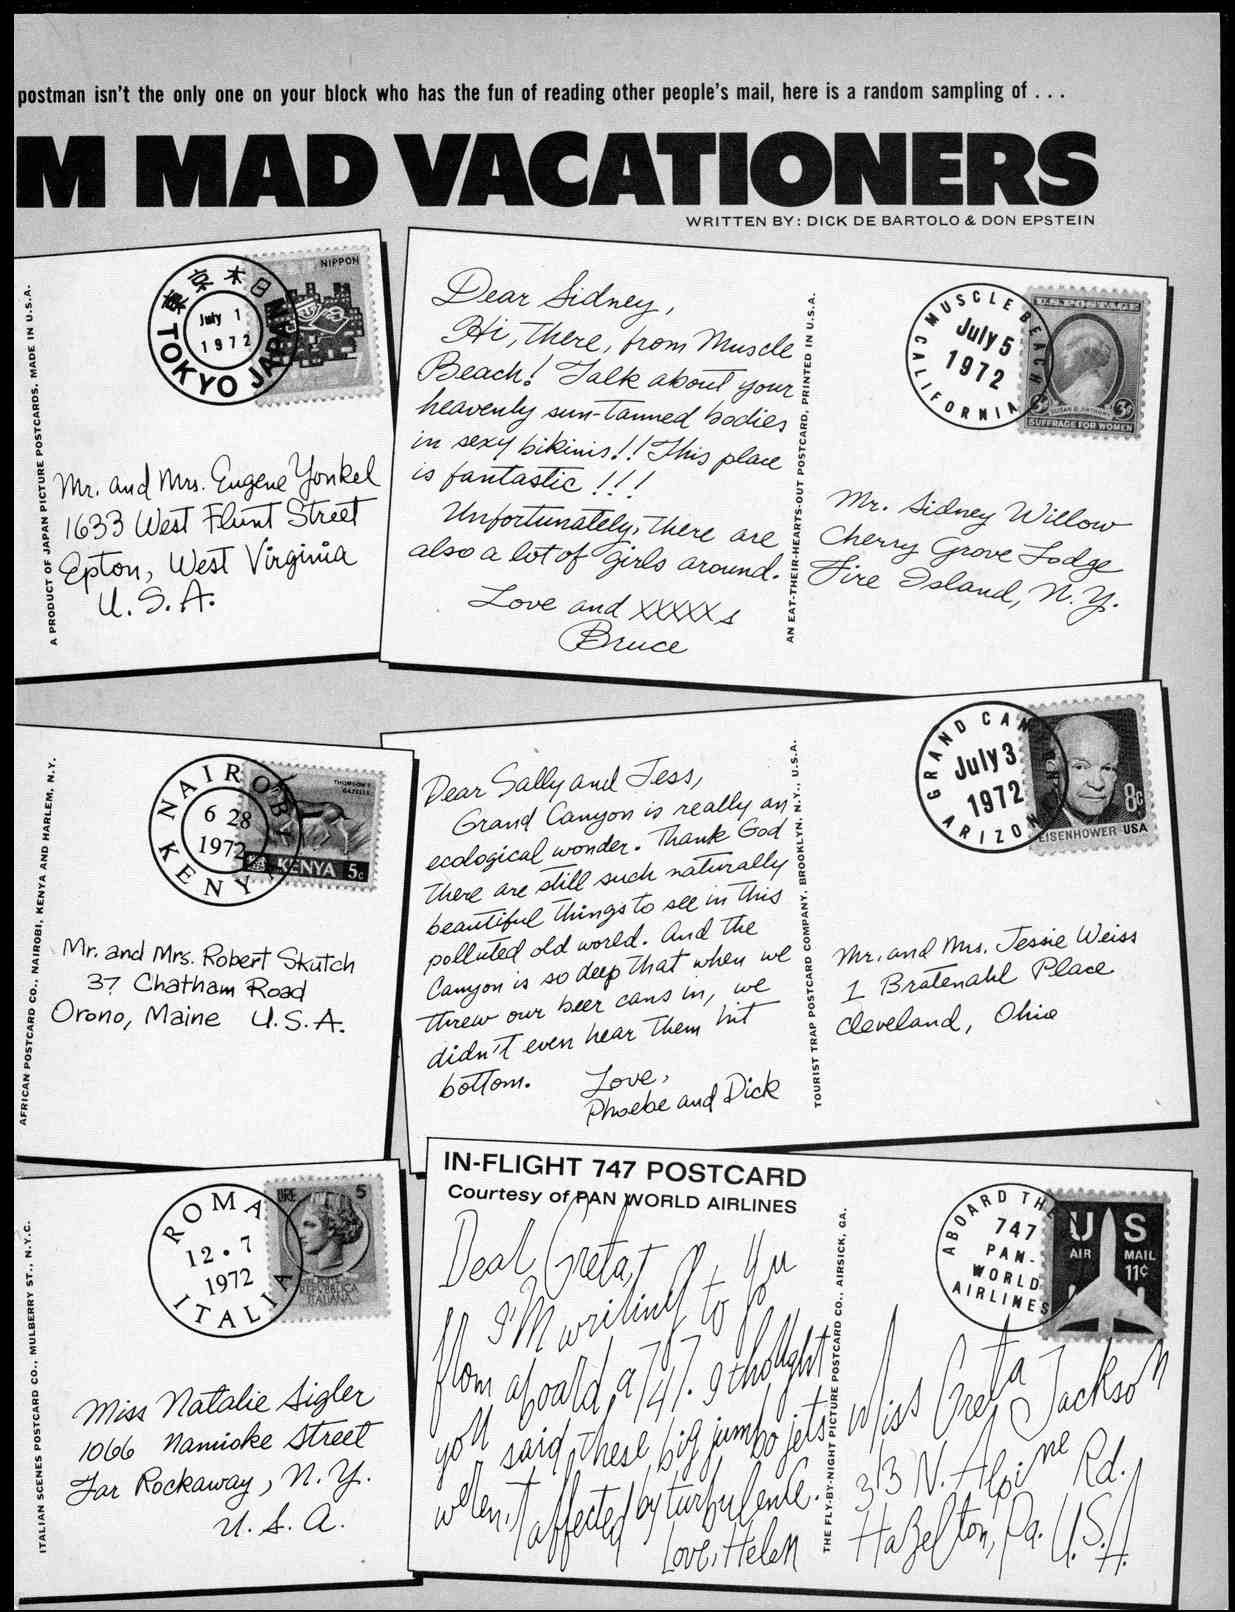 postman isn't the only one on your block who has the fun of reading other people's mail, here is a random sampling of . . .
M MAD VACATIONERS
WRITTEN BY: DICK DE BARTOLO & DON EPSTEIN
A PRODUCT OF JAPAN PICTURE POSTCARDS, MADE IN U.S.A.
東京本日
July 1
1972
TOKYO JAPAN
NIPPON
Mr. and Mrs. Eugene Yonkel
1633 West Flunt Street
Epton, West Virginia
U.S.A.
Dear Sidney,
Hi, there, from Muscle
Beach! Talk about your
heavenly sun-tanned bodies
in sexy bikinis!! This place
is fantastic!!!
Unfortunately, there are
also a lot of girls around.
Love and XXXXXs
Bruce
AN EAT-THEIR-HEARTS-OUT POSTCARD, PRINTED IN U.S.A.
MUSCLE BEACH
July 5
1972
CALIFORNIA
U.S. POSTAGE
3¢ SUSAN B. ANTHONY 3¢
SUFFRAGE FOR WOMEN
Mr. Sidney Willow
Cherry Grove Lodge
Fire Island, N.Y.
AFRICAN POSTCARD CO., NAIROBI, KENYA AND HARLEM, N.Y.
NAIROBI
6 28
1972
KENYA
THOMSON'S
GAZELLE
KENYA 5c
Mr. and Mrs. Robert Skutch
37 Chatham Road
Orono, Maine U.S.A.
Dear Sally and Jess,
Grand Canyon is really an
ecological wonder. Thank God
there are still such naturally
beautiful things to see in this
polluted old world. And the
Canyon is so deep that when we
threw our beer cans in, we
didn't even hear them hit
bottom. Love,
Phoebe and Dick
TOURIST TRAP POSTCARD COMPANY, BROOKLYN, N.Y., U.S.A.
GRAND CANYON
July 3
1972
ARIZONA
8¢
EISENHOWER USA
Mr. and Mrs. Jessie Weiss
1 Bratenahl Place
Cleveland, Ohio
ITALIAN SCENES POSTCARD CO., MULBERRY ST., N.Y.C.
ROMA
12 • 7
1972
ITALIA
LIRE 5
REPUBBLICA
ITALIANA
Miss Natalie Sigler
1066 Namioke Street
Far Rockaway, N.Y.
U.S.A.
IN-FLIGHT 747 POSTCARD
Courtesy of PAN WORLD AIRLINES
Dear Greta,
I'm writing to you
from aboard a 747. I thought
you said these big jumbo jets
weren't affected by turbulence.
Love, Helen
THE FLY-BY-NIGHT PICTURE POSTCARD CO., AIRSICK, GA.
ABOARD THE
747
PAN-
WORLD
AIRLINES
US
AIR MAIL
11¢
Miss Greta Jackson
313 N. Alpine Rd.
Hazelton, Pa. U.S.A.